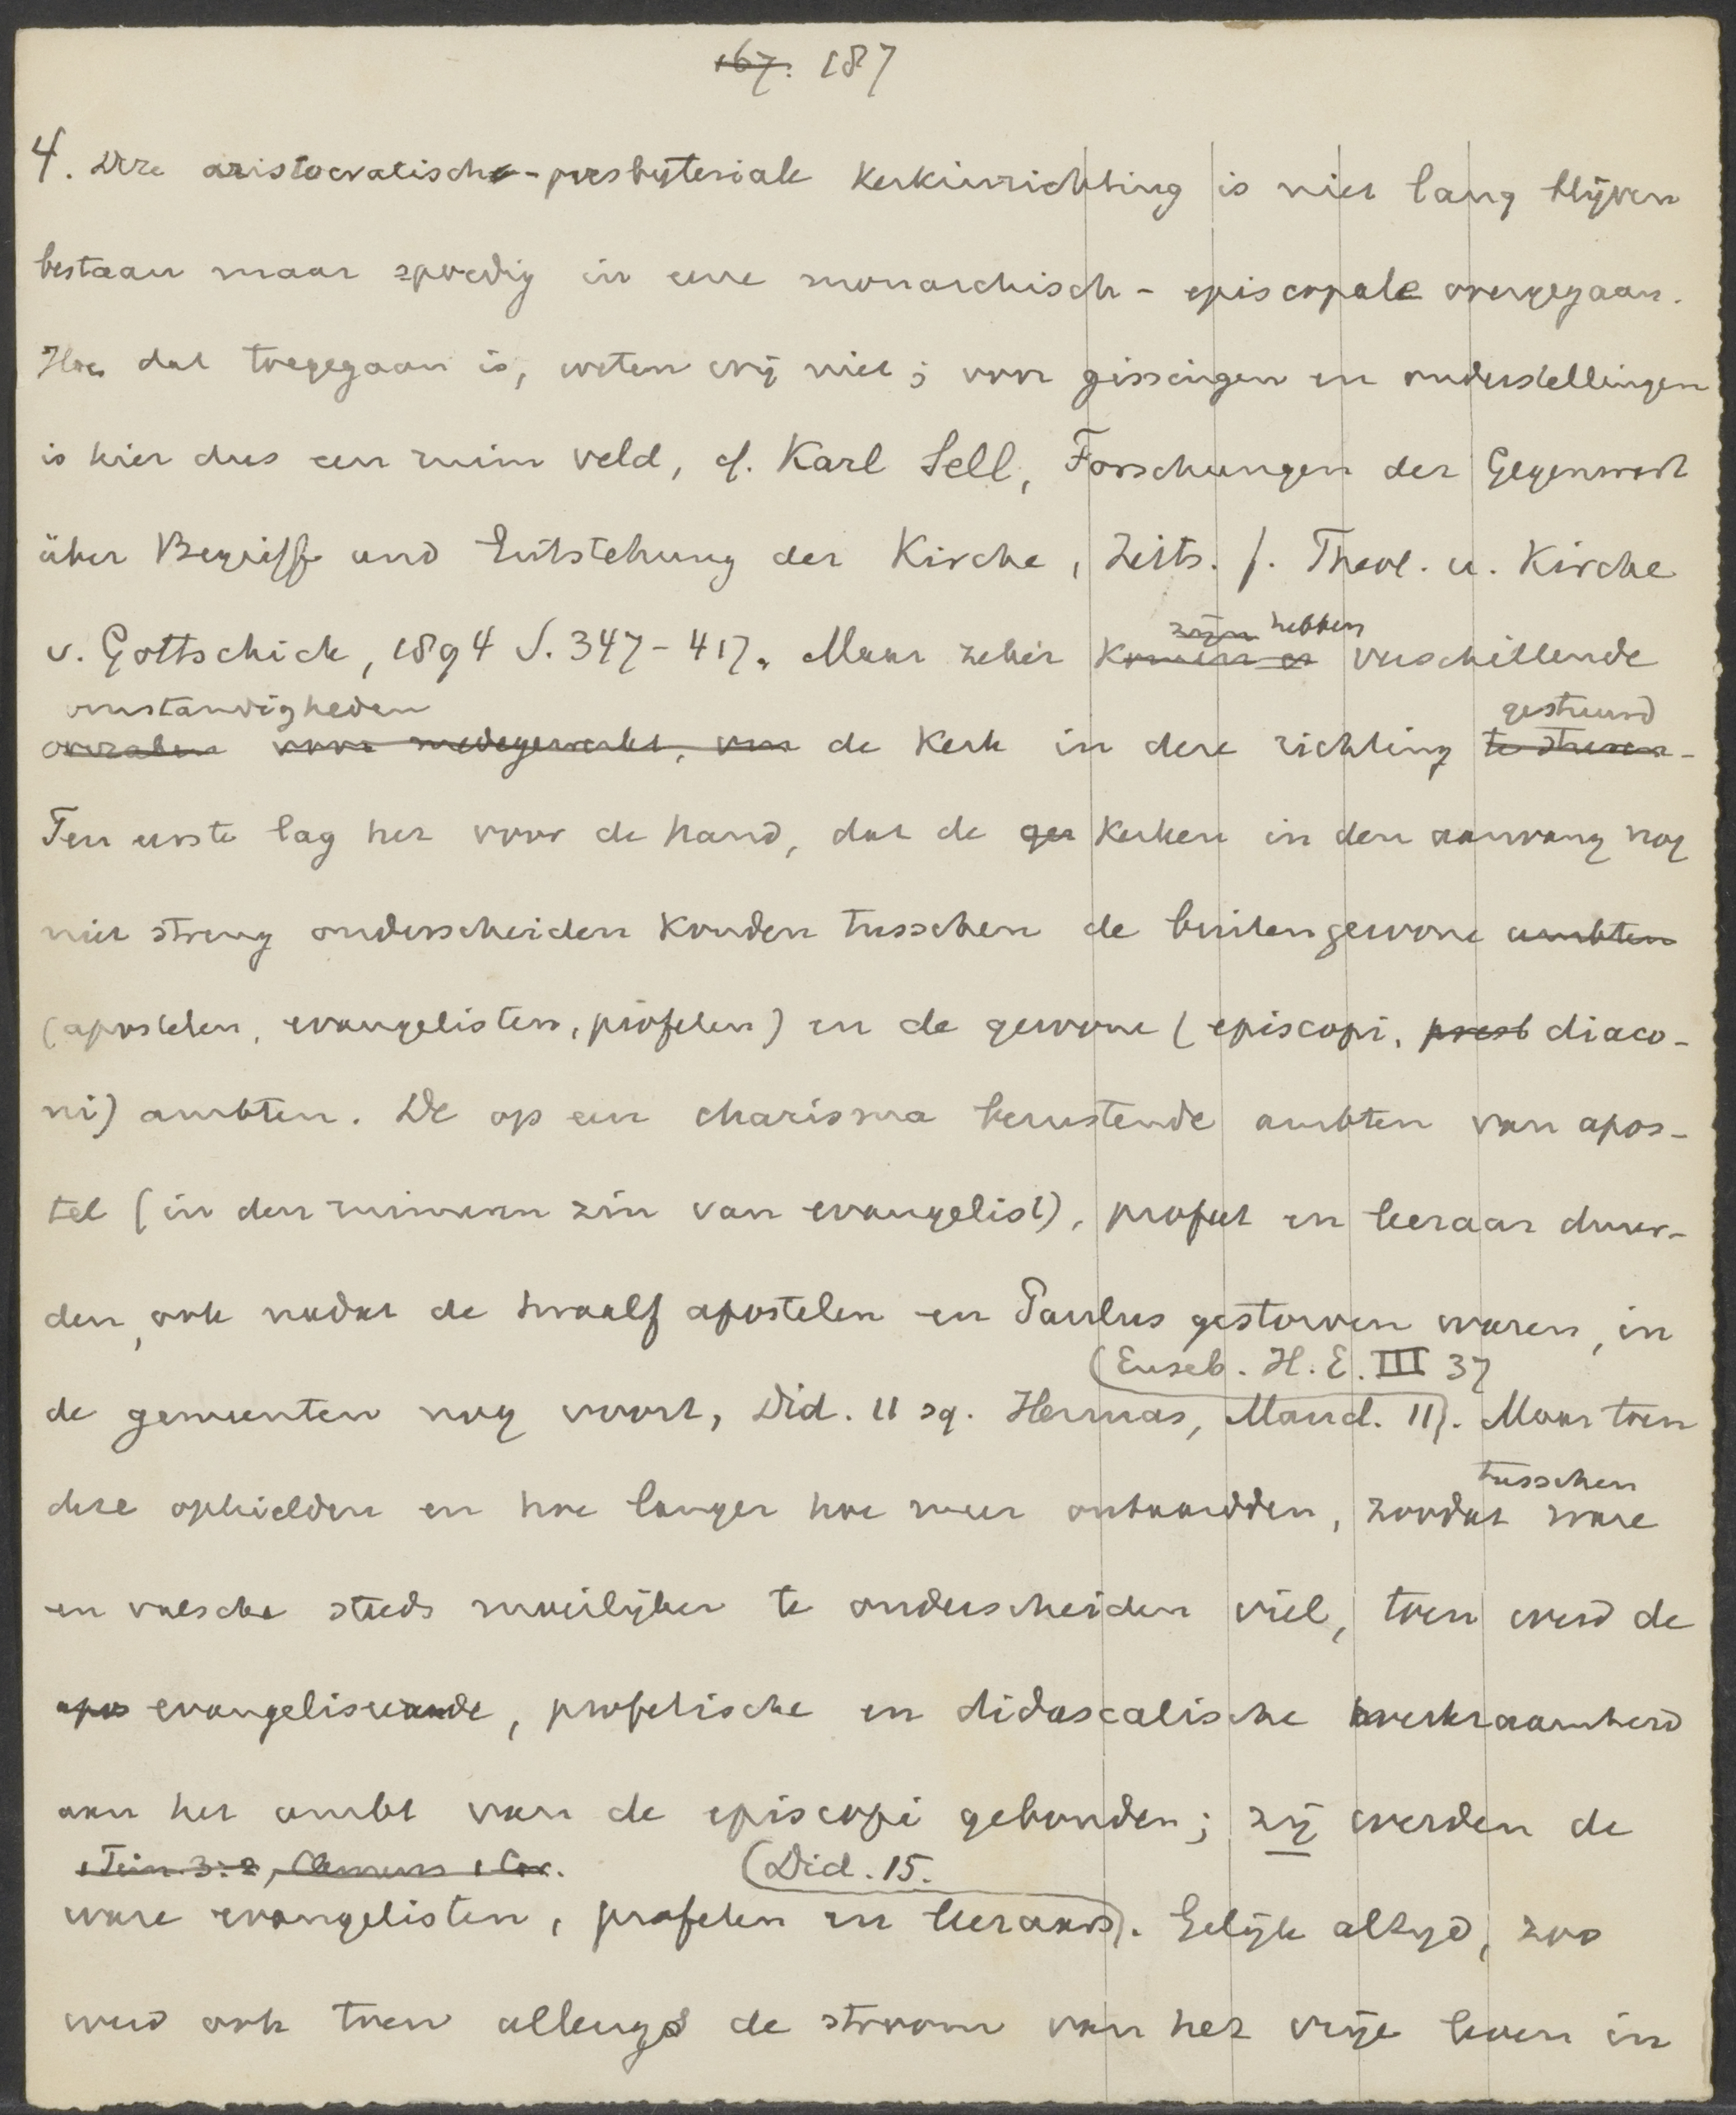 167. 187
4. Deze aristocratisch-presbyteriale kerkinrichting is niet lang blijven
bestaan maar spoedig in eene monarchisch-episcopale overgegaan.
Hoe dat toegegaan is, weten wij niet; voor gissingen en onderstellingen
is hier dus een ruim veld, cf. Karl Sell, Forschungen der Gegenwart
über Begriff und Entstehung der Kirche, Zeits. f. Theol. u. Kirche
zijn hebben
v. Gottschick, 1894 S. 347-417. Maar zeker komen er verschillende
omstandigheden gestuurd
oorzaken voor medegewerkt, om de kerk in deze richting te sturen.
Ten eerste lag het voor de hand, dat de ger kerken in den aanvang nog
niet streng onderscheiden konden tusschen de buitengewone ambten
(apostelen, evangelisten, profeten) en de gewone (episcopi, presb diaco-
ni) ambten. De op een charisma berustende ambten van apos-
tel (in den ruimeren zin van evangelist), profeet en leeraar duur-
den, ook nadat de twaalf apostelen en Paulus gestorven waren, in
(Euseb. H. E. III 37
de gemeenten nog voort, Did. 11 sq. Hermas, Mand. 11). Maar toen
tusschen
deze ophielden en hoe langer hoe meer ontaardden, zoodat ware
en valsche steeds moeilijker te onderscheiden viel, toen werd de
apos evangeliseerende, profetische en didascalische werkzaamheid
aan het ambt van de episcopi gebonden; zij werden de
1 Tim. 3:2, Clemens 1 Cor. (Did. 15.
ware evangelisten, profeten en leeraars). Gelijk altijd, zoo
werd ook toen allengs de stroom van het vrije leven in